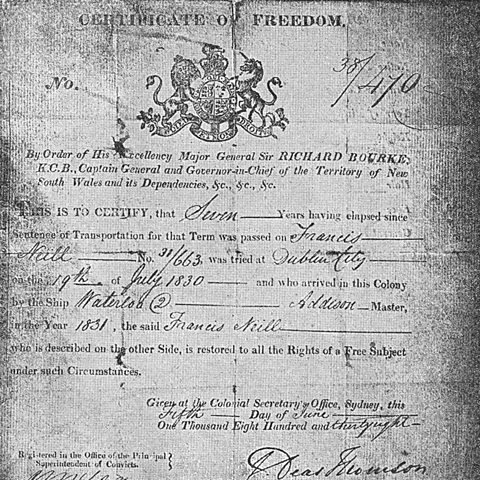 CERTIFICATE OF FREEDOM.
No. 38/470
DIEU ET MON DROIT
By Order of His Excellency Major General Sir RICHARD BOURKE,
K.C.B., Captain General and Governor-in-Chief of the Territory of New
South Wales and its Dependencies, &c., &c., &c.
THIS IS TO CERTIFY, that Seven Years having elapsed since
Sentence of Transportation for that Term was passed on Francis
Neill No. 31/663, was tried at Dublin City
on the 19th of July 1830 and who arrived in this Colony
by the Ship Waterloo (2) Addison Master,
in the Year 1831, the said Francis Neill
who is described on the other Side, is restored to all the Rights of a Free Subject
under such Circumstances.
Given at the Colonial Secretary's Office, Sydney, this
Fifth Day of June
One Thousand Eight Hundred and thirtyeight
Registered in the Office of the Principal
Superintendent of Convicts.
E. Deas Thomson